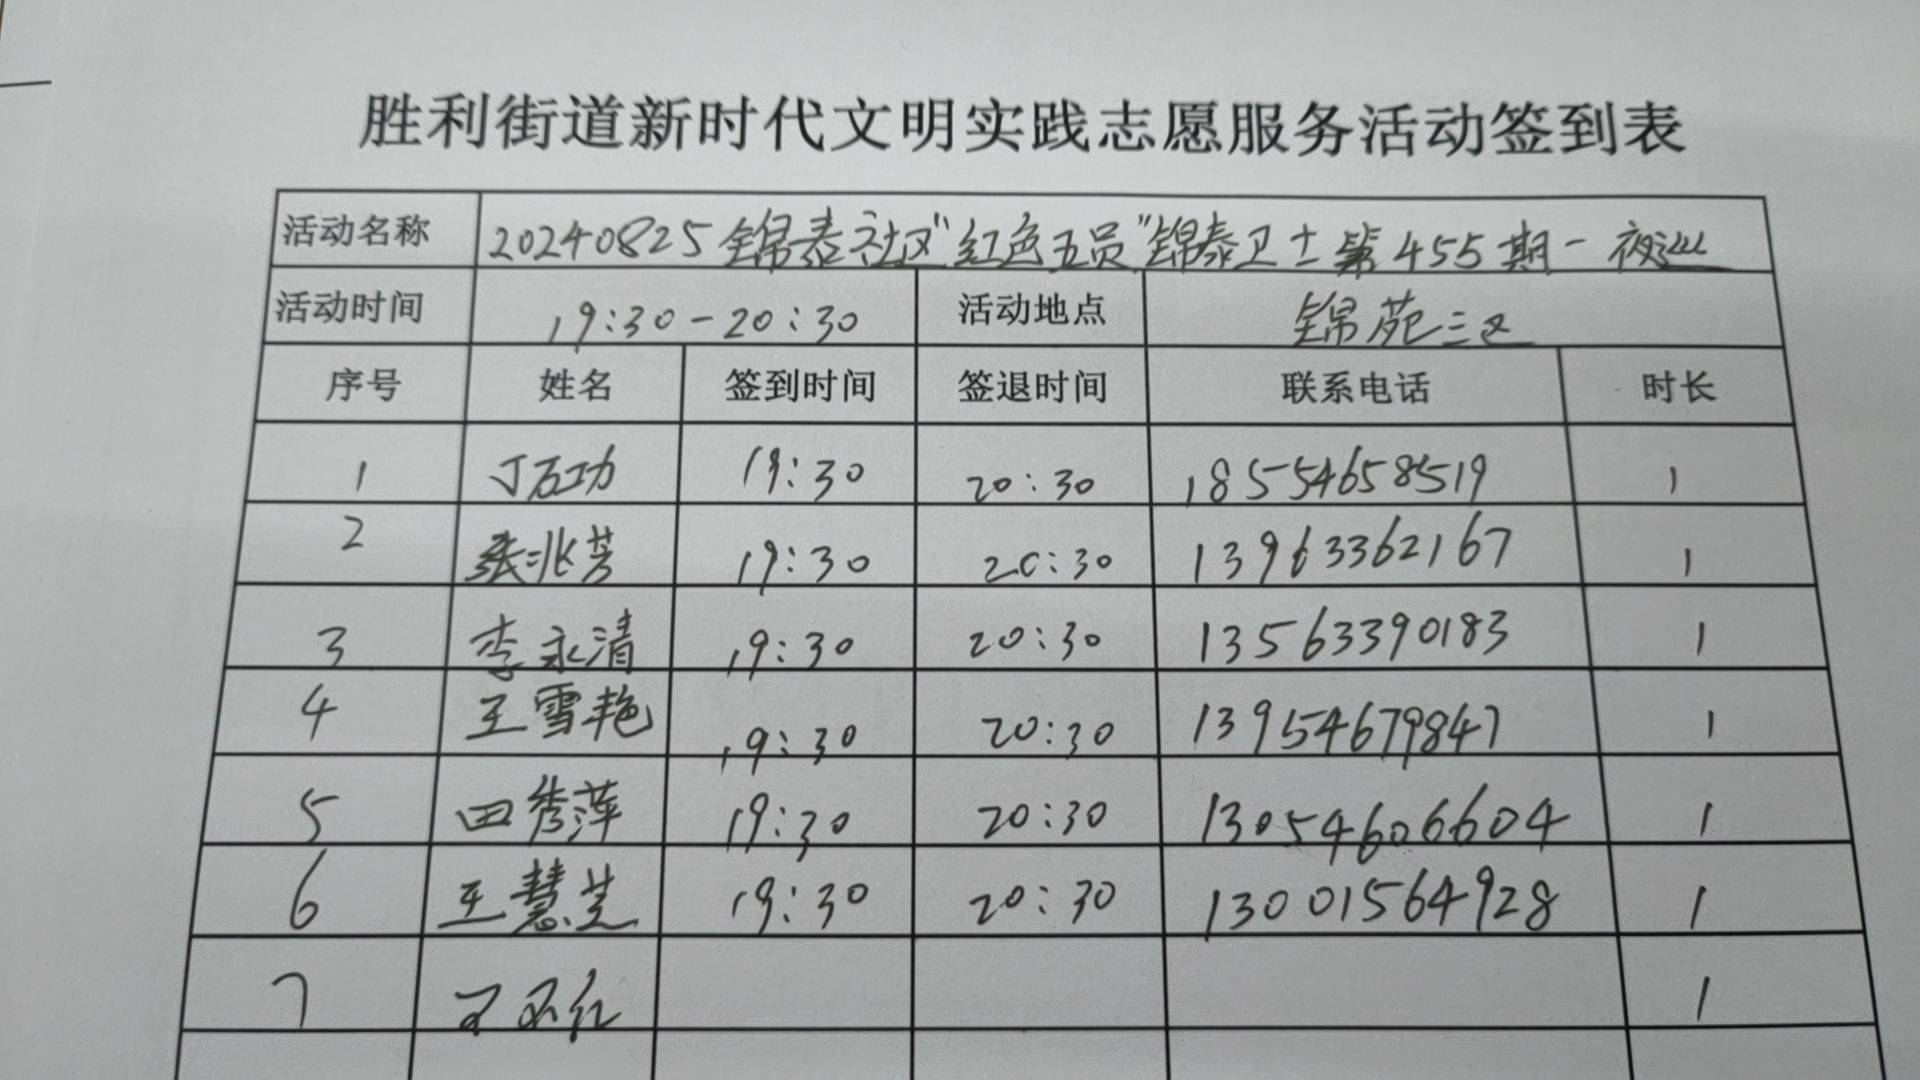 胜利街道新时代文明实践志愿服务活动签到表
活动名称 20240825锦泰社区“红色五员”锦泰卫士第455期-夜巡
活动时间 19:30-20:30 活动地点 锦苑三区
序号 姓名 签到时间 签退时间 联系电话 时长
1 丁万功 19:30 20:30 18554658519 1
2 张兆芳 19:30 20:30 13963362167 1
3 李永清 19:30 20:30 13563390183 1
4 王雪艳 19:30 20:30 13954679847 1
5 田秀萍 19:30 20:30 13054606604 1
6 王慧芝 19:30 20:30 13001564928 1
7 1